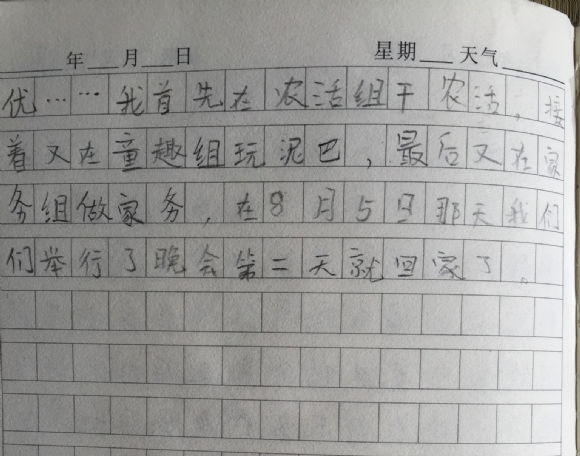 年 月 日 星期 天气
优……我首先在农活组干农活,接
着又在童趣组玩泥巴,最后又在家
务组做家务,在8月5日那天我们
们举行了晚会第二天就回家了。